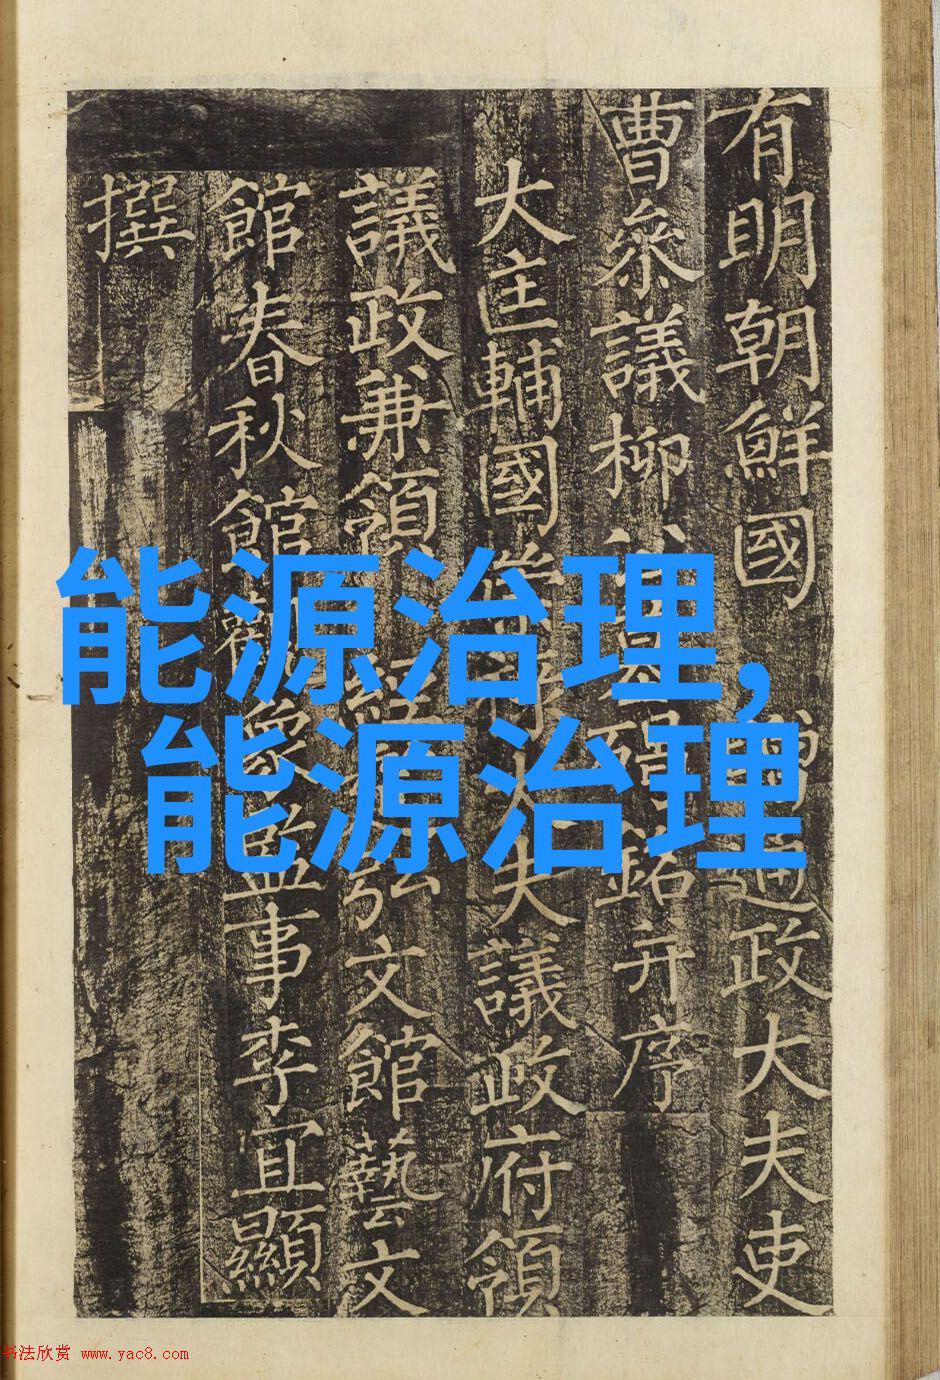 有明朝鮮國贈通政大夫吏
曹參議柳公墓碣銘并序
大匡輔國崇祿大夫議政府領
議政兼領經筵弘文館藝文
館春秋館觀象監事李宜顯
撰
能源治理,
能源治理
书法欣赏 www.yac8.com